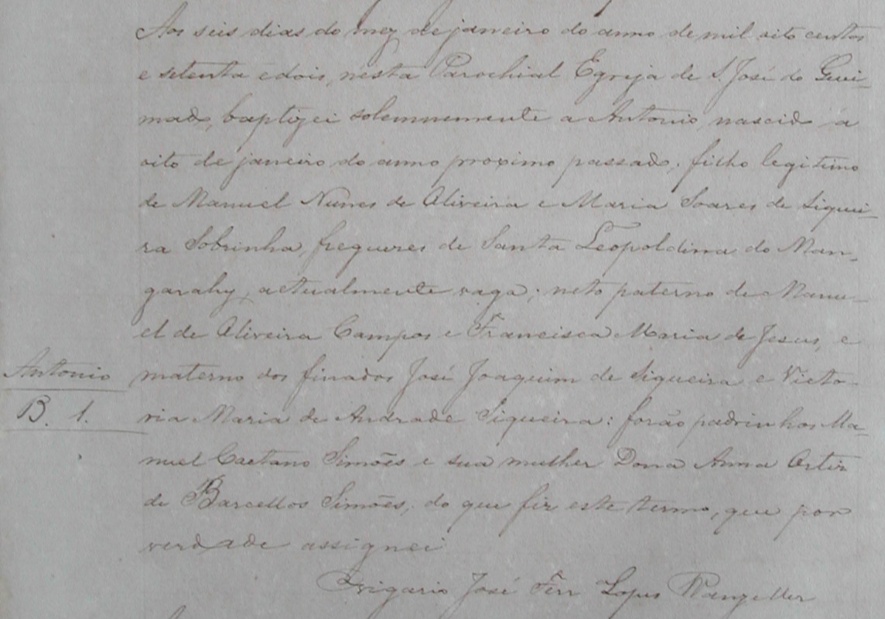 Aos seis dias do mez de janeiro do anno de mil oito centos
e setenta e dois, nesta Parochial Egreja de S. José do Quei-
mado, baptizei solemnemente a Antonio, nascido a
oito de janeiro do anno proximo passado; filho legitimo
de Manuel Nunes de Oliveira e Maria Soares de Siquei-
ra Sobrinha, freguezes de Santa Leopoldina do Man-
garahy, actualmente vaga; neto paterno de Manu-
el de Oliveira Campos e Francisca Maria de Jesus, e
Antonio
materno dos finados José Joaquim de Siqueira e Victo-
B. 1.
ria Maria de Andrade Siqueira: forão padrinhos Ma-
nuel Caetano Simões e sua mulher Dona Anna Ortiz
de Barcellos Simões; do que fiz este termo, que por
verdade assignei
O vigario José Ferr Lopes